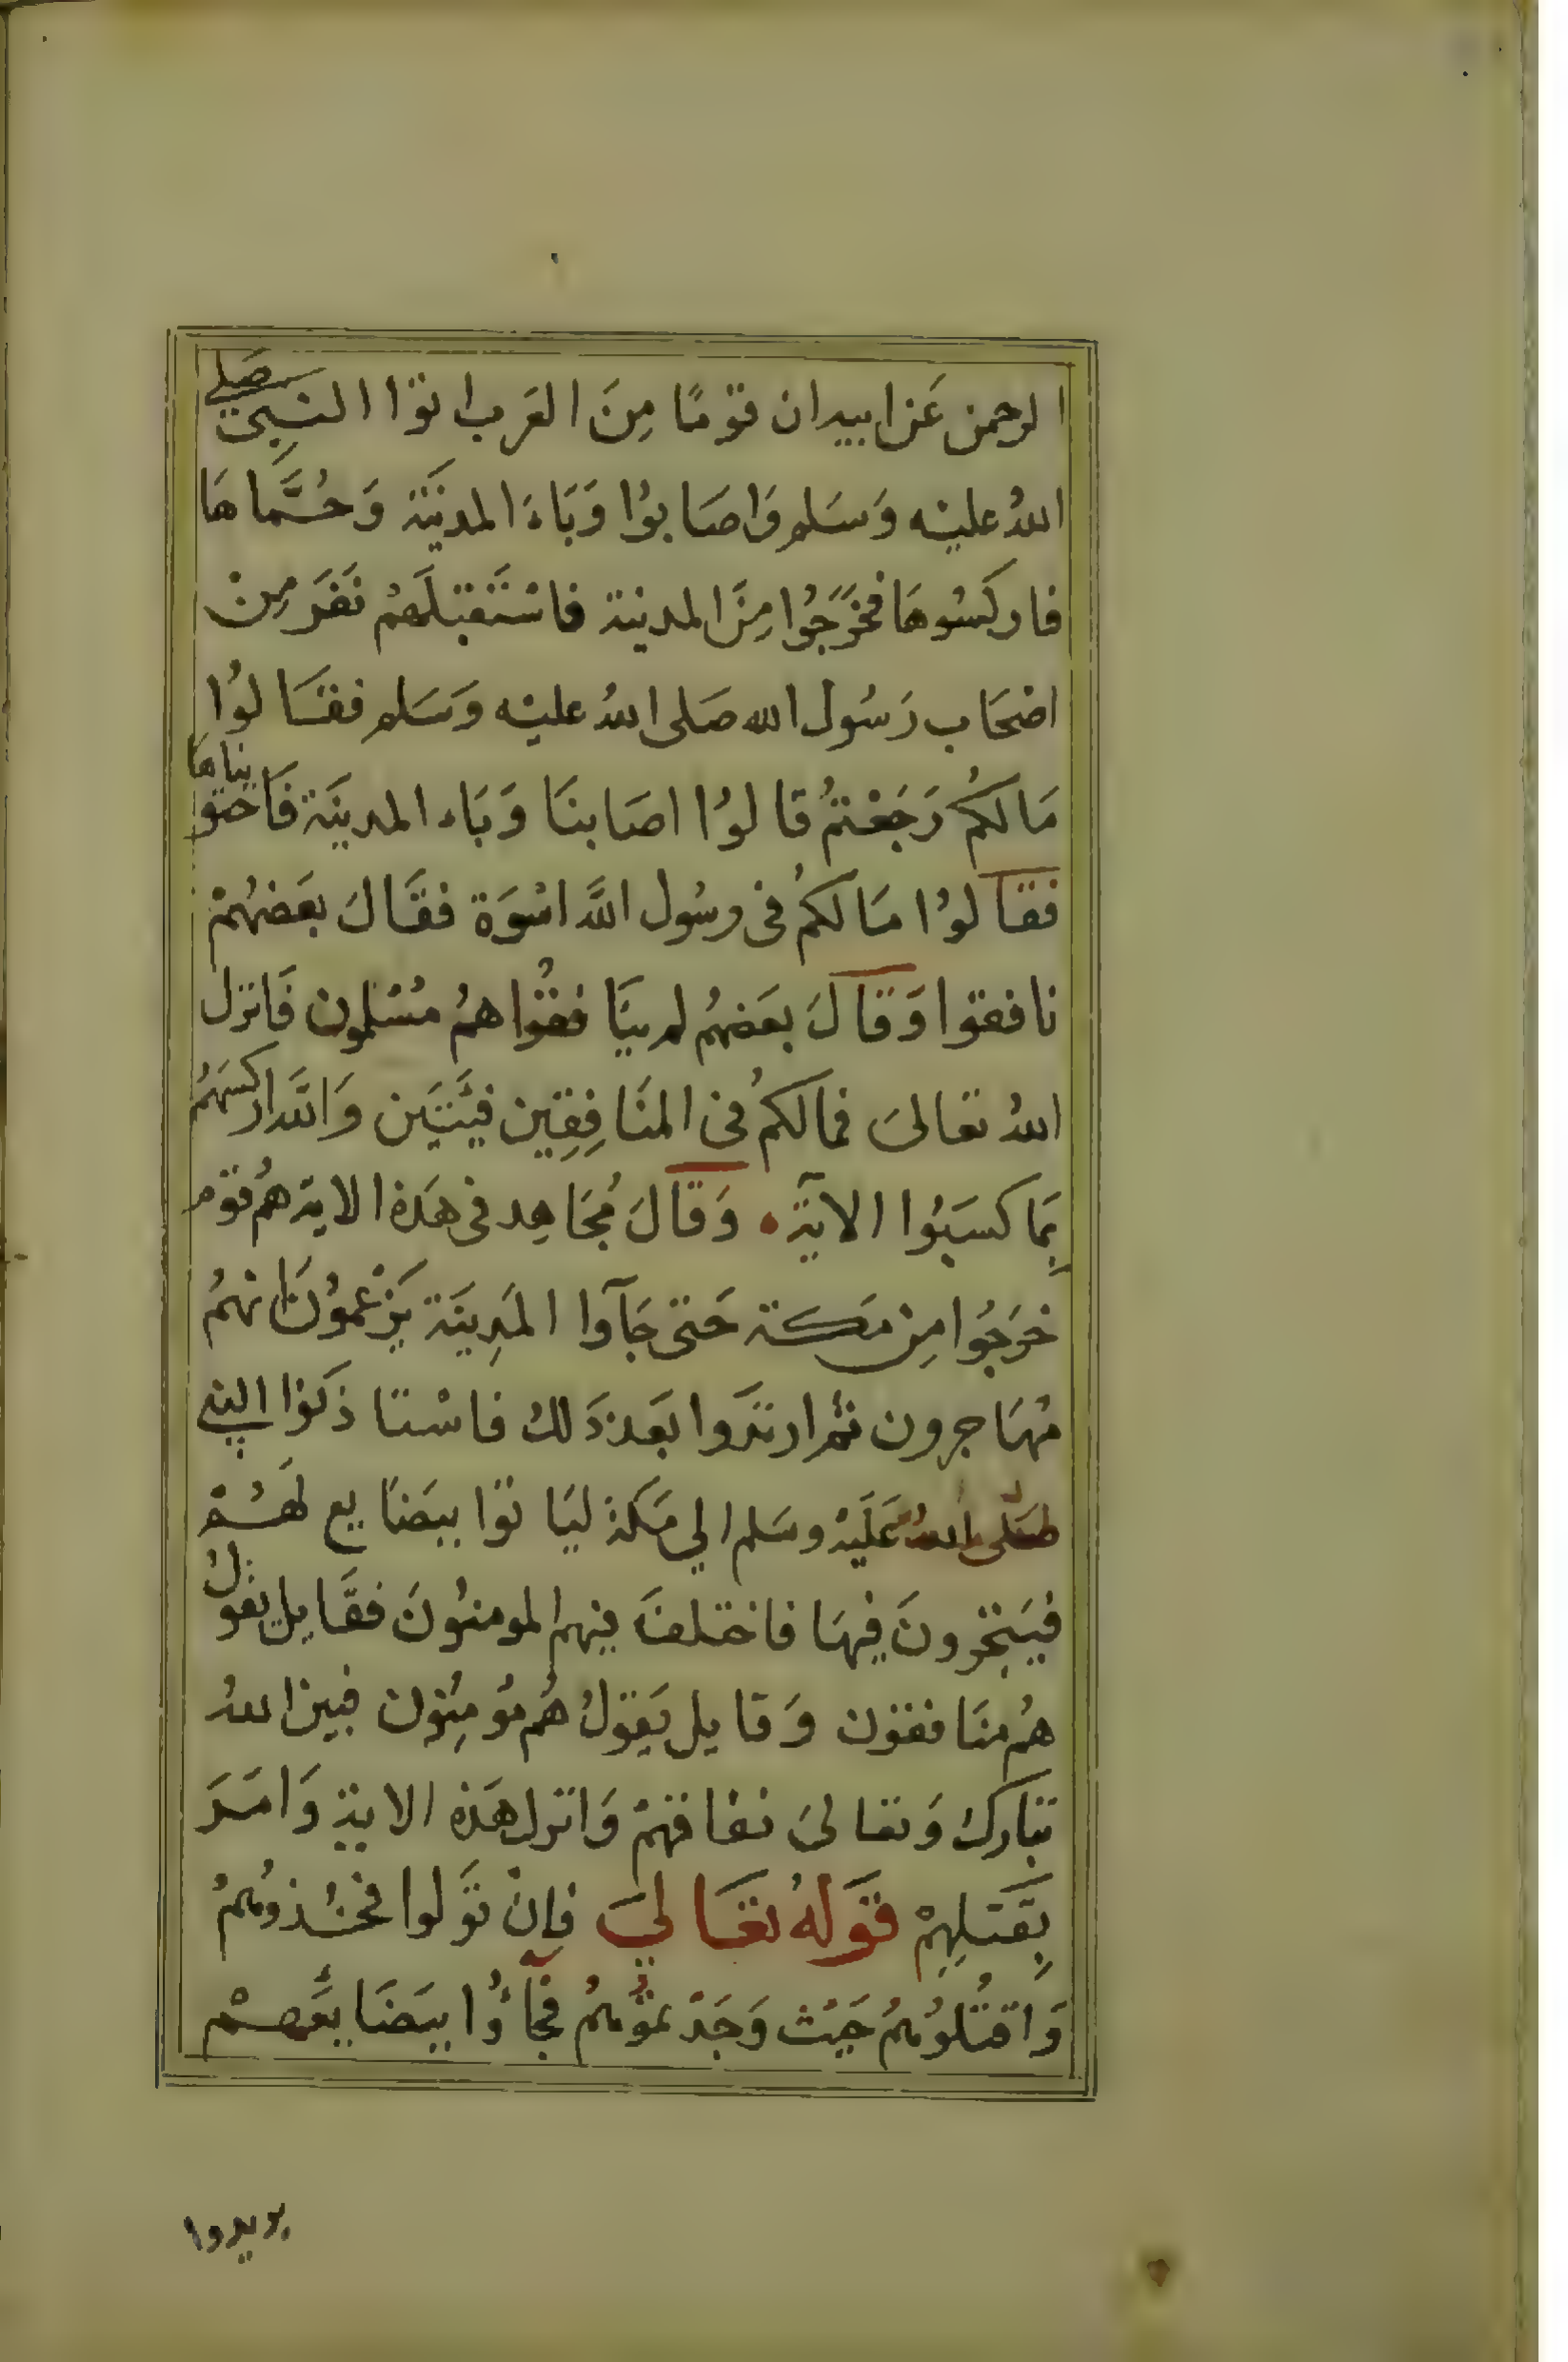 الرحمن عَن ابيه ان قوْمًا مِنَ العَرب اتوْا النبِيّ صَلي
اللهُ عليْه وَسَلم وَاصَابوُا وَبَاءَ المدينَة وَحُمَّاهَا
فاركسُوهَا فخَرَجُوا مِنَ المدينة فاسْتَقبَلَهُم نَفَر مِنْ
اصْحَاب رَسُول الله صَلى اللهُ عليْه وَسَلم فقالوُا
مَالكُم رَجَعْتمُ قالوُا اصَابنَا وَبَاء المدينَة فَاحتويناهَا
فقالوُا مَالكمُ فى رسُول اللَّه اسْوَة فقَالَ بعَضهُمْ
نافقوا وَقالَ بعَضهُم لم ينَافقوُا همُ مسْلمون فَانزل
اللهُ تعالىَ فمالكمُ فى المنَافِقِين فِئَتَيَن وَاللَّه اركسَهُم
بِمَا كسَبوُا الآيَة وَقالَ مُجَاهِد فى هَذه الاية همُ قوْم
خرَجُوا مِنْ مَكة حَتى جَآوا المَدِينَة يَزْعمُوْنَ انهمُ
مُهَاجرون ثم ارتدَوا بعَد ذَلكُ فاسْتاذنوا النبي
صَلى اللهُ عَلَيْهْ وسَلم الي مَكة ليَاتوْا ببضَايع لهَمْ
فيَتجِرونَ فِيهَا فاختلفَ فيهم المومنوُنَ فقَايل يقول
همُ منَافقوْن وَقايل يَقوْلُ هُم مُومِنوُن فبين اللهُ
تبَارك وَتعالىَ نفاقهمْ وَانزل هَذه الاية وَامَرَ
بِقَتلِهِمْ قوَلهُ تعَاليَ فإِنْ توَلوا فخُذوُهمُ
وَاقتُلوُهمُ حَيْث وَجَدْتموُهمُ فجَاؤُا ببَضَايعَهمْ
يريدوا